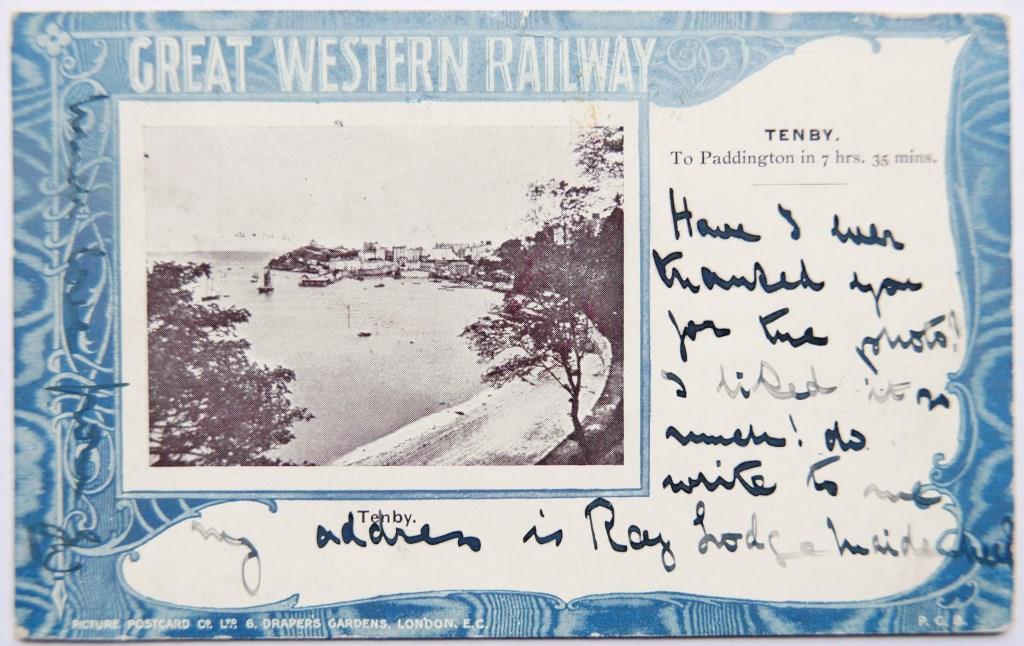 GREAT WESTERN RAILWAY
TENBY.
To Paddington in 7 hrs. 35 mins.
Have I ever
thanked you
for the photo?
I liked it so
much! do
write to me
my address is Ray Lodge Maidenhead
Tenby.
much love from
PICTURE POSTCARD Co. LTD. 6, DRAPERS GARDENS, LONDON, E.C.
P.C.B.